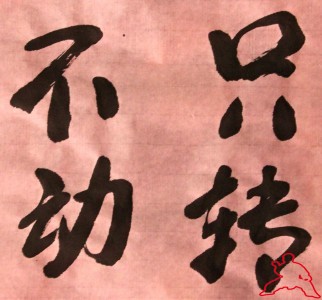 只转
不动